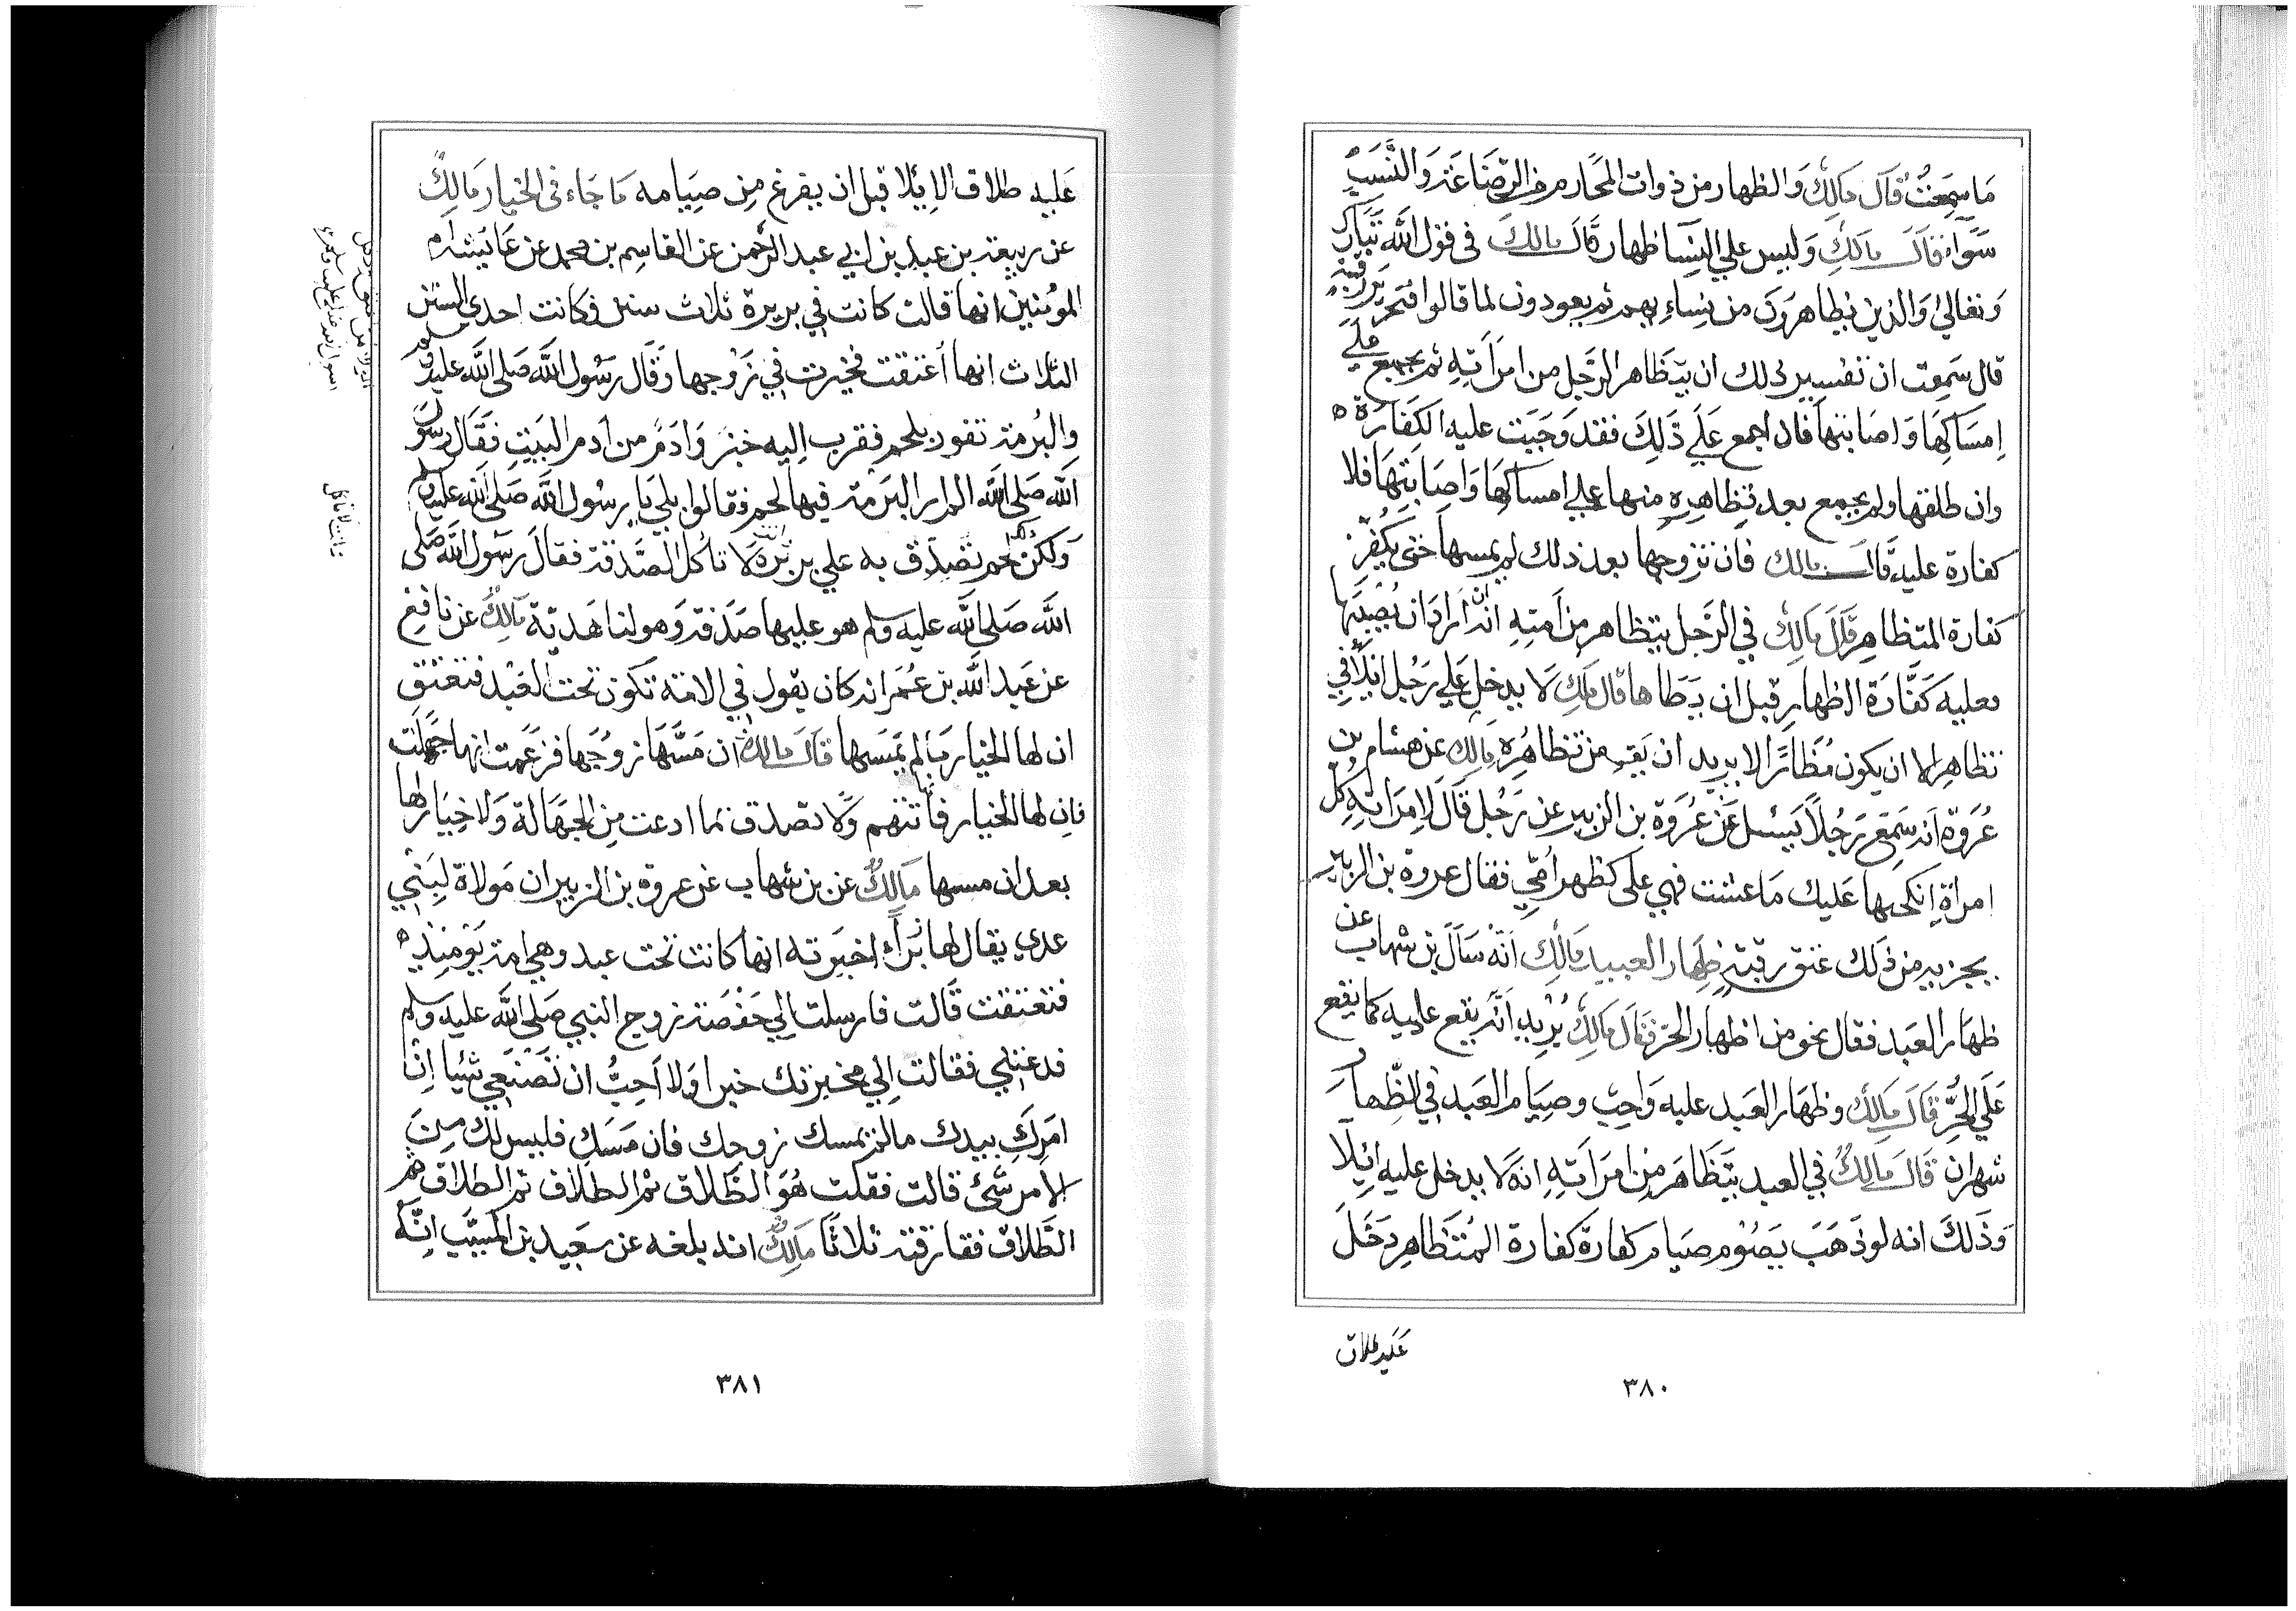 مَا سَمِعْتُ قَالَ مَالِكٌ وَالظهار من ذوات المحَارم من الرّضَاعَة وَالنَّسَبِ
سَوَاء قَالَ مَالِك وَليس علي النِسَا ظهار قَالَ مالك في قول الله تَبَارك
وَتعَالي وَالذين يُظاهرون من نِسَاءِ يهم ثم يعودون لما قالوا فتحرير رقبة
قال سَمِعت ان تفسير ذلك ان يتَظَاهر الرّجل من امرَاتِهِ ثم يجمع عَلَي
اِمسَاكِهَا وَاصَابتهَا فان اجمع عَلَي ذَلِكَ فقد وَجَبَت عليه الكَفَارَة ه
وان طلقها ولم يجمع بعد تَظاهِرِه منها علي امسَاكهَا وَاصَابَتِهَا فلا
كفارة عليه قَالَ مالك فان تزوجها بعد ذلك لم يمسها حَتى يُكَفِّرَ
كفارة المتظاهِرِ قَالَ مَالِكٌ في الرّجل يتظاهر من اَمَتِهِ انّه ان اَرَادَ ان يُصِيبَهَا
فعليه كَفَّارَة الظهارِ قبل ان يَطَاها قال مَالِك لَا يدخل عَلَي رَجُل ايلًا في
تظاهِر الا ان يكون مُظَارًا لا يريد ان يَفِيء من تظاهُرِهِ مَالِك عن هشام بن
عُرْوَة اَنه سَمِعَ رَجُلًا يَسْئل عَنْ عُرْوَة بن الزبير عن رَجُل قَالَ لِامرَاتِهِ كُل
امراةٍ اِنكحها عَليك مَا عشت فهي على كظهر اُمّي فقال عروة بن الزبير
يجزيه من ذَلك عتق رقبة ظِهَار العبيد مَالِك اَنّه سَاَل بن شهاب عن
ظهَار العَبد فقال نحو من اظهار الحرّ قَالَ مَالِكٌ يُرِيد اَنّه يقع عليه كما يقع
عَلَي الحُرِّ قَالَ مَالِكٌ وظهَار العَبد عليه وَاجِب وصيَام العَبد في الظِّهَار
شهران قَالَ مَالِكٌ في العبد يتَظَاهَر من امرَاتِهِ انه لَا يدخل عليه ايلَا
وَذَلكَ انه لو ذَهَبَ يَصُوْم صيَام كفارَة كفارة المُتَظَاهِر دَخَلَ
عَليه طلاق
٣٨٠
عَليه طلاق الاِيلَا قبل ان يفرغ مِن صيَامه مَا جَاء في الخيار مَالِكٌ
عن ربيعة بن عبد بن ابي عبد الرَّحْمن عن القاسِم بن محمد عن عَائِشَة اُم
المؤمنين انها قالت كانت في بريرة ثلاث سنن فكانت احدى السنن
الثلاث انها اُعتقت فخيرت في زَوْجها وَقَال رَسُول اللَّه صَلى اللَّه عليه وسلم
وَالبُرمة تفور بلحم فقرب اِليه خبز وَاُدم من اُدم البَيتِ فقَال رَسُول
اللَّه صَلى اللَّه الم ار البُرمة فيها لحم فقالوا بلي يَا رسُول اللَّه صَلى اللَّه عليه وسلم
وَلكن ذلك لحم تُصُدِّق به علي بريرة لَا تأكل الصَّدقة فقالَ رسَول اللَّه صَلى
اللَّه صَلى اللَّه عليه وسلم هو عليها صَدَقة وَهو لنا هَدية مَالِكٌ عن نافِعٍ
عن عَبد اللَّه بن عُمَر انه كان يقول في الامَة تَكون تحت العَبْد فتعتق
ان لها الخيار مَا لم يَمَسها قَالَ مَالِك ان مَسَّهَا زوْجُهَا فزعَمت انها جَهلت
فان لها الخيار فانها تتهم وَلَا تصدق بما ادعت مِن الجَهَالة وَلَا خِيَار لها
بعد ان مسها مَالِكٌ عن بن شهاب عن عروة بن الزبير ان مَولاة لِبَنِي
عدي يقال لها زبَراء اخبَرَته انها كانت تحت عبد وهي امة يَوْمَئِذٍ ه
فتعتقت قَالت فارسلت الي حَفْصَة زوج النبي صَلى اللَّه عليه وسلم
فدعتني فقالت اِني مخبرتك خبرا وَلا اُحِبُّ ان تَصْنَعِي شَئيا اِنَّ
امَركِ بيدك مالم يمسك زوجك فان مَسَكِ فليس لك مِنَ
الامر شَئ قالت فقلت هُوَ الطَّلاق ثم الطلاق ثم الطلاق ثم
الطَّلاق ففارقته ثلاثًا مَالِكٌ انه بلغه عن سَعيد بن المسَيَّب انَّه
٣٨١